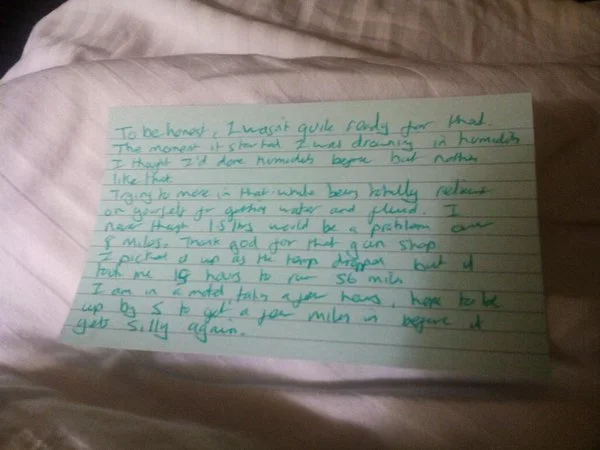 To be honest, I wasn't quite ready for that.
The moment it started I was drowning in humidity
I thought I'd done humidity before but nothing
like that
Trying to move in that while being totally reliant
on yourself for getting water and fluid. I
never thought 1.5 ltrs would be a problem over
8 miles. Thank god for that gun shop
I picked it up as the temp dropped but it
took me 18 hours to run 56 miles
I am in a motel, taking a few hours, hope to be
up by 5 to get a few miles in before it
gets silly again.